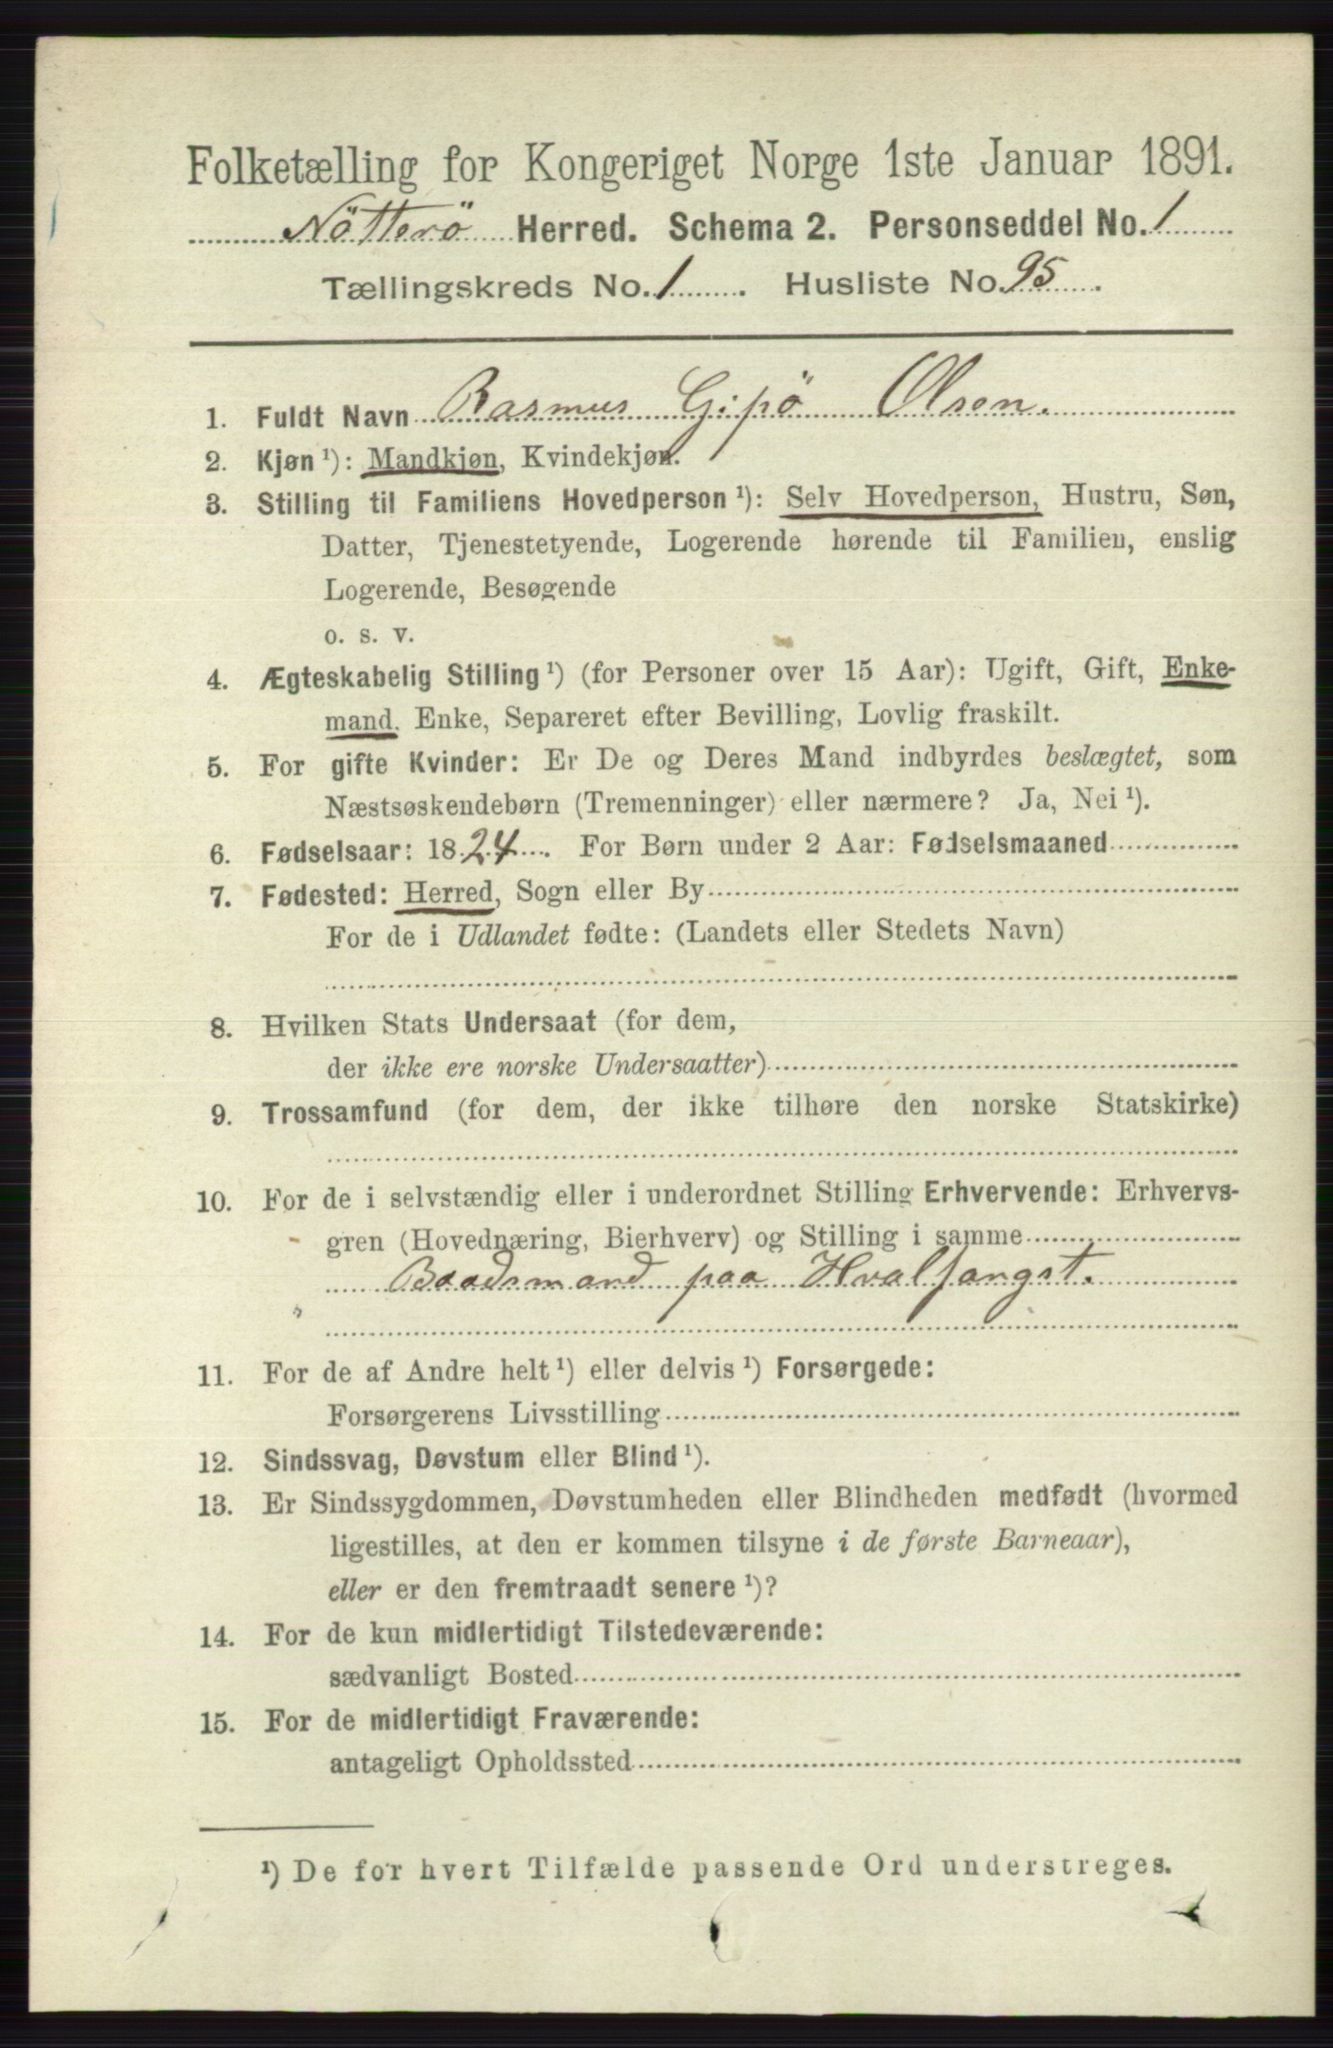 Folketælling for Kongeriget Norge 1ste Januar 1891.
Nötterö Herred. Schema 2. Personseddel No. 1
Tællingskreds No. 1. Husliste No. 95.
1. Fuldt Navn Rasmus Gipö Olsen.
2. Kjøn ¹): Mandkjøn, Kvindekjøn.
3. Stilling til Familiens Hovedperson ¹): Selv Hovedperson, Hustru, Søn,
Datter, Tjenestetyende, Logerende hørende til Familien, enslig
Logerende, Besøgende
o. s. v.
4. Ægteskabelig Stilling ¹) (for Personer over 15 Aar): Ugift, Gift, Enke-
mand. Enke, Separeret efter Bevilling, Lovlig fraskilt.
5. For gifte Kvinder: Er De og Deres Mand indbyrdes beslægtet, som
Næstsøskendebørn (Tremenninger) eller nærmere? Ja, Nei ¹).
6. Fødselsaar: 1824. For Børn under 2 Aar: Fødselsmaaned
7. Fødested: Herred, Sogn eller By
For de i Udlandet fødte: (Landets eller Stedets Navn)
8. Hvilken Stats Undersaat (for dem,
der ikke ere norske Undersaatter)
9. Trossamfund (for dem, der ikke tilhøre den norske Statskirke)
10. For de i selvstændig eller i underordnet Stilling Erhvervende: Erhvervs-
gren (Hovednæring, Bierhverv) og Stilling i samme
Baadsmand paa Hvalfangst.
11. For de af Andre helt ¹) eller delvis ¹) Forsørgede:
Forsørgerens Livsstilling
12. Sindssvag, Døvstum eller Blind ¹).
13. Er Sindssygdommen, Døvstumheden eller Blindheden medfødt (hvormed
ligestilles, at den er kommen tilsyne i de første Barneaar),
eller er den fremtraadt senere ¹)?
14. For de kun midlertidigt Tilstedeværende:
sædvanligt Bosted
15. For de midlertidigt Fraværende:
antageligt Opholdssted
¹) De for hvert Tilfælde passende Ord understreges.